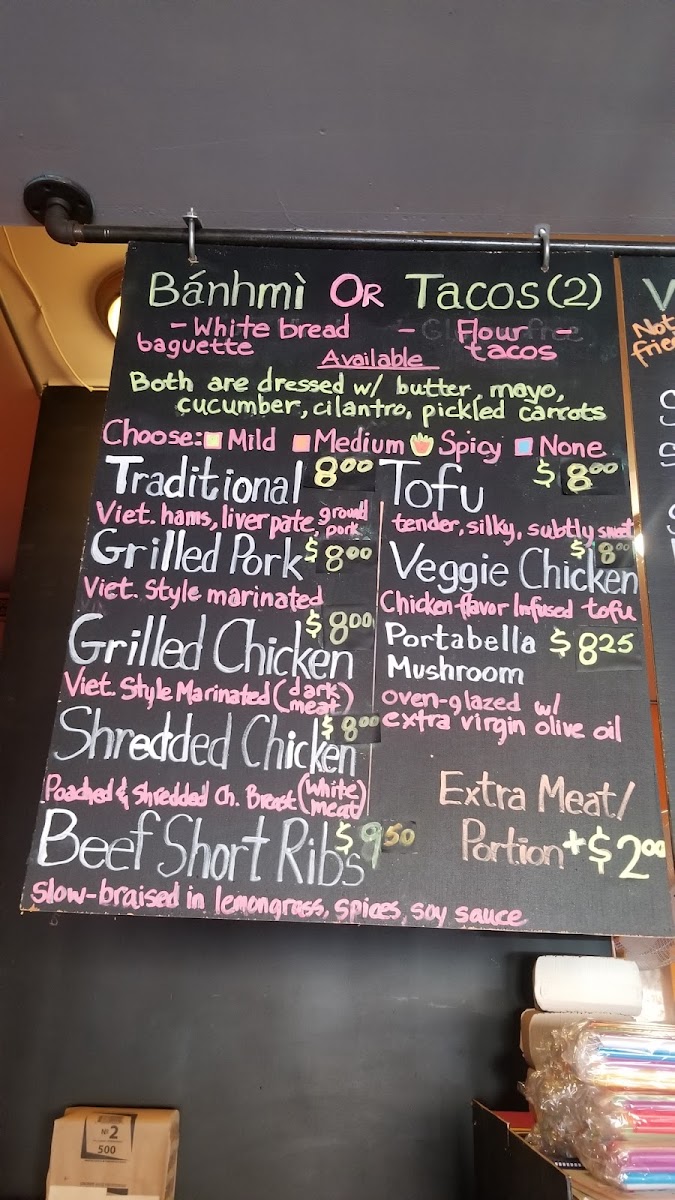 Bánhmì OR Tacos (2)
- White bread baguette - Flour tacos -
Available
Both are dressed w/ butter, mayo,
cucumber, cilantro, pickled carrots
Choose: Mild Medium Spicy None
Traditional 8.00
Viet. hams, liver pate, ground pork
Grilled Pork $8.00
Viet. Style marinated
Grilled Chicken $8.00
Viet. Style Marinated (dark meat)
Shredded Chicken $8.00
Poached & Shredded Ch. Breast (white meat)
Beef Short Ribs $9.50
slow-braised in lemongrass, spices, soy sauce
Tofu $8.00
tender, silky, subtly sweet
Veggie Chicken $8.00
Chicken flavor Infused tofu
Portabella $8.25
Mushroom
oven-glazed w/
extra virgin olive oil
Extra Meat/
Portion +$2.00
V
Not
frie
No 2
500